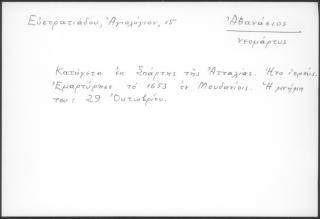 Εὐστρατιάδου, Ἁγιολόγιον, 15
Ἀθανάσιος
νεομάρτυς
Κατήγετο ἐκ Σπάρτης τῆς Ἀτταλίας. Ἦτο ἱερεύς.
Ἐμαρτύρησε τό 1653 ἐν Μουδανίοις. Ἡ μνήμη
του: 29 Ὀκτωβρίου.